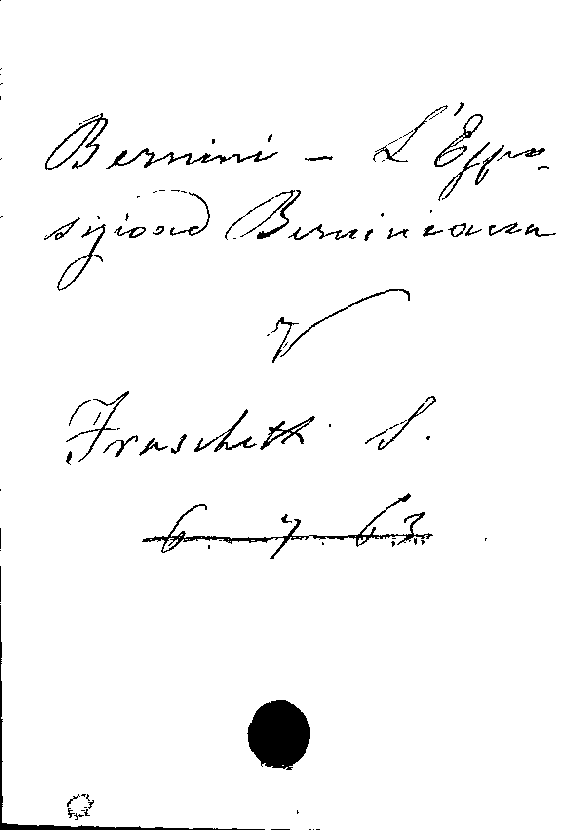 Bernini - L'Espo-
sizione Berniniana
V
Fraschetti S.
6. 7. 63.